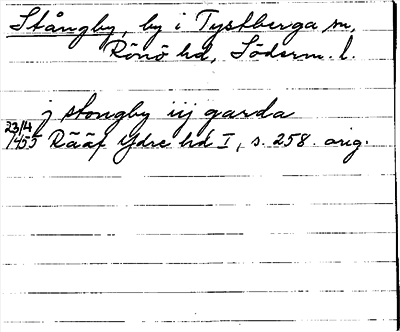 Stångby, by i Tystberga sn,
Rönö hd, Söderm. l.
j stongby iij garda
23/4
1455 Rääf Ydre hd I, s. 258. orig.